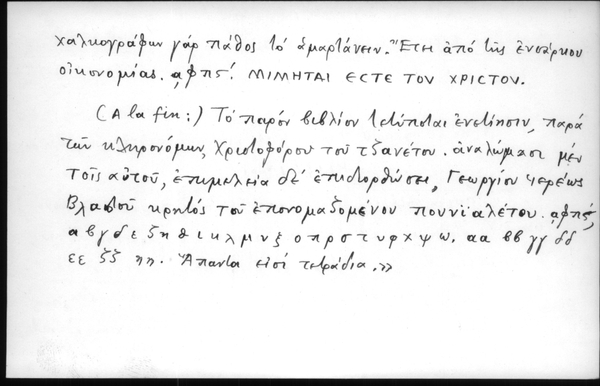 χαλκογράφων γάρ πάθος τό ἁμαρτάνειν. Ἔτει ἀπό τῆς ἐνσάρκου
οἰκονομίας. ͵αφπϛ´. ΜΙΜΗΤΑΙ ΕϹΤΕ ΤΟΝ ΧΡΙϹΤΟΝ.
(A la fin:) Τό παρόν βιβλίον τετύπωται ἐνετίησιν, παρά
τῶν κληρονόμων, Χριστοφόρου τοῦ τζανέτου. ἀναλώμασι μέν
τοῖς αὐτοῦ, ἐπιμελεία δέ ἐπιδιορθώσει, Γεωργίου ἱερέως
Βλαστοῦ κρητός τοῦ ἐπονομαζομένου πουνϊαλέτου. ͵αφπϛ´,
α β γ δ ε ζ η θ ι κ λ μ ν ξ ο π ρ σ τ υ φ χ ψ ω. αα ββ γγ δδ
εε ζζ ηη. Ἅπαντα εἰσί τετράδια.»